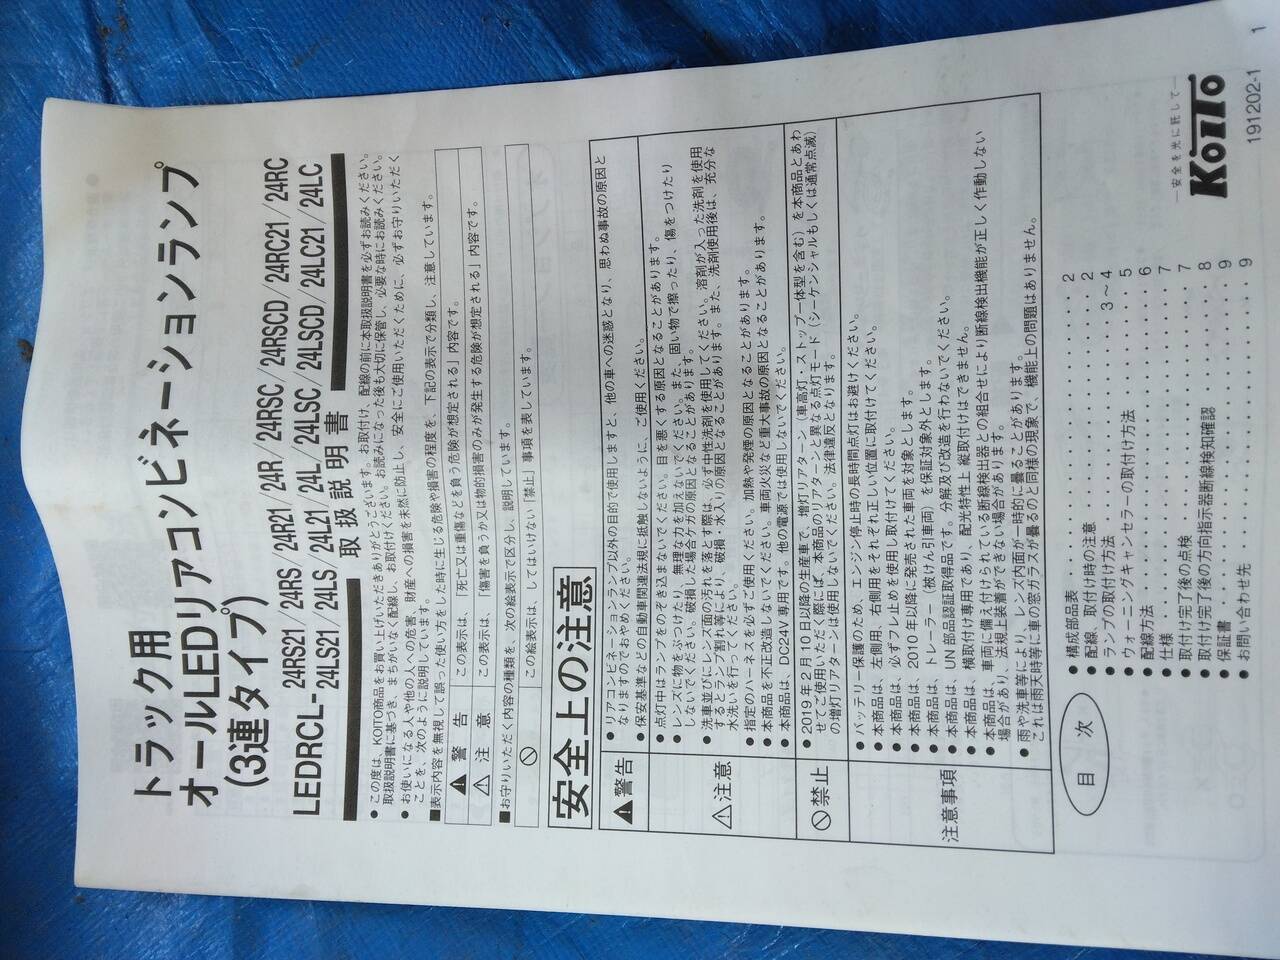 トラック用
オールLEDリアコンビネーションランプ
(3連タイプ)
LEDRCL-
24RS21 / 24RS / 24R21 / 24R / 24RSC / 24RSCD / 24RC21 / 24RC
24LS21 / 24LS / 24L21 / 24L / 24LSC / 24LSCD / 24LC21 / 24LC
取扱説明書
●この度は、KOITO商品をお買い上げいただきありがとうございます。お取付け、配線の前に本取扱説明書を必ずお読みください。
取扱説明書に基づき、まちがいなく配線し、お取付けください。お読みになった後も大切に保管し、必要な時にお読みください。
●お使いになる人や他の人への危害、財産への損害を未然に防止し、安全にご使用いただくために、必ずお守りいただく
ことを、次のように説明しています。
■表示内容を無視して誤った使い方をした時に生じる危険や損害の程度を、下記の表示で分類し、注意しています。
警告 この表示は、「死亡又は重傷などを負う危険が想定される」内容です。
注意 この表示は、「傷害を負うか又は物的損害のみが発生する危険が想定される」内容です。
■お守りいただく内容の種類を、次の絵表示で区分し、説明しています。
この絵表示は、してはいけない「禁止」事項を表しています。
安全上の注意
警告
●リアコンビネーションランプ以外の目的で使用しますと、他の車への迷惑となり、思わぬ事故の原因と
なりますのでおやめください。
●保安基準などの自動車関連法規に抵触しないように、ご使用ください。
注意
●点灯中はランプをのぞき込まないでください。目を悪くする原因となることがあります。
●レンズに物をぶつけたり、無理な力を加えないでください。また、固い物で擦ったり、傷をつけたり
しないでください。破損した場合ケガの原因となることがあります。
●洗車並びにレンズ面の汚れを落とす際は、必ず中性洗剤を使用してください。溶剤が入った洗剤を使用
するとランプ割れ等により、破損・水入りの原因となることがあります。また、洗剤使用後は、充分な
水洗いを行ってください。
●指定のハーネスを必ずご使用ください。加熱や発煙の原因となることがあります。
●本商品を不正改造しないでください。車両火災など重大事故の原因となることがあります。
●本商品は、DC24V専用です。他の電源では使用しないでください。
禁止
●2019年2月10日以降の生産車で、増灯リアターン（車高灯・ストップ一体型を含む）を本商品とあわ
せてご使用いただく際には、本商品のリアターンと異なる点灯モード（シーケンシャルもしくは通常点滅）
の増灯リアターンは使用しないでください。法律違反となります。
注意事項
●バッテリー保護のため、エンジン停止時の長時間点灯はお避けください。
●本商品は、左側用、右側用をそれぞれ正しい位置に取付けてください。
●本商品は、必ずフレ止めを使用し取付けてください。
●本商品は、2010年以降に発売された車両を対象とします。
トレーラー（被けん引車両）を保証対象外とします。
●本商品は、UN部品認証取得品です。分解及び改造を行わないでください。
●本商品は、横取付け専用であり、配光特性上縦取付けはできません。
●本商品は、車両に備え付けられている断線検出器との組合せにより断線検出機能が正しく作動しない
場合があり、法規上装着ができない場合があります。
●雨や洗車等により、レンズ内面が一時的に曇ることがあります。
これは雨天時等に車の窓ガラスが曇るのと同様の現象で、機能上の問題はありません。
目次
●構成部品表 2
●配線、取付け時の注意 2
●ランプの取付け方法 3～4
●ウォーニングキャンセラーの取付け方法 5
●配線方法 6
●仕様 7
●取付け完了後の点検 7
●取付け完了後の方向指示器断線検知確認 8
●保証書 9
●お問い合わせ先 9
―安全を光に託して―
KOITO
191202-1
1